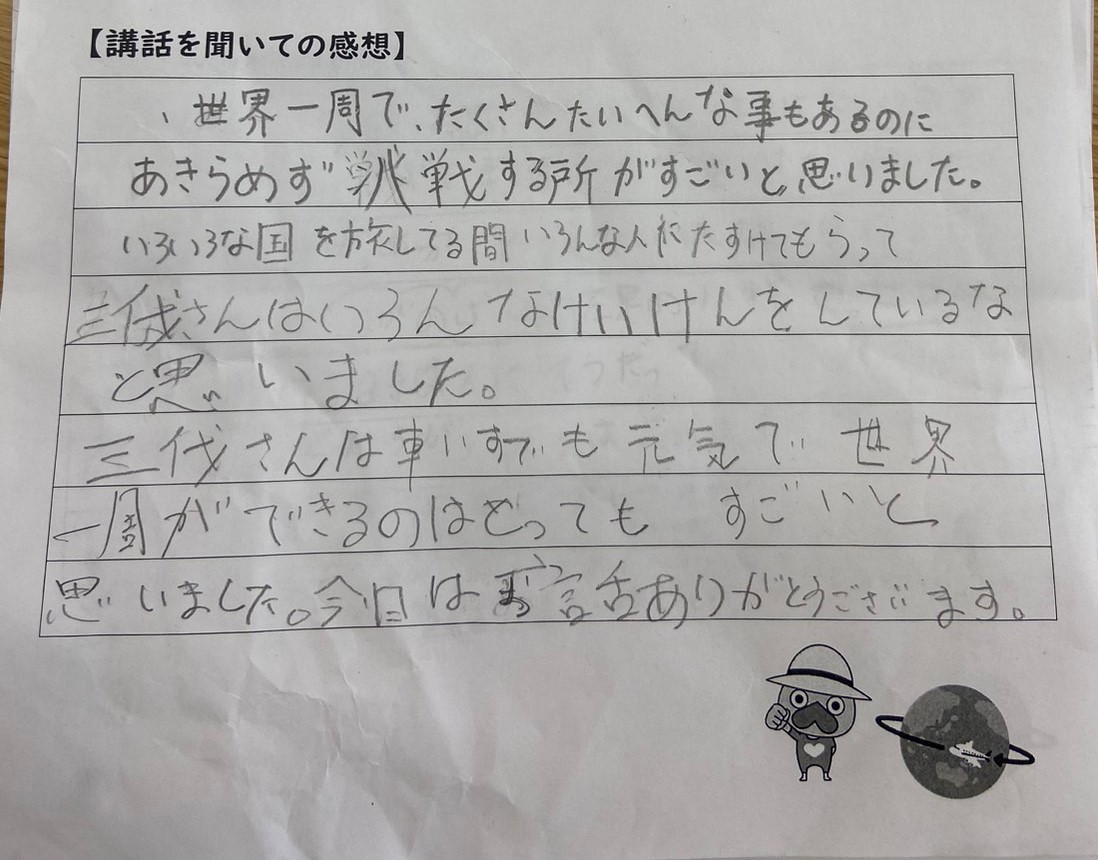 【講話を聞いての感想】
、世界一周で、たくさんたいへんな事もあるのに
あきらめず挑戦する所がすごいと思いました。
いろいろな国を旅してる間いろんな人にたすけてもらって
三代さんはいろんなけいけんをしているな
と思いました。
三代さんは車いすでも元気で世界
一周ができるのはとっても すごいと
思いました。今日はお話ありがとうございます。